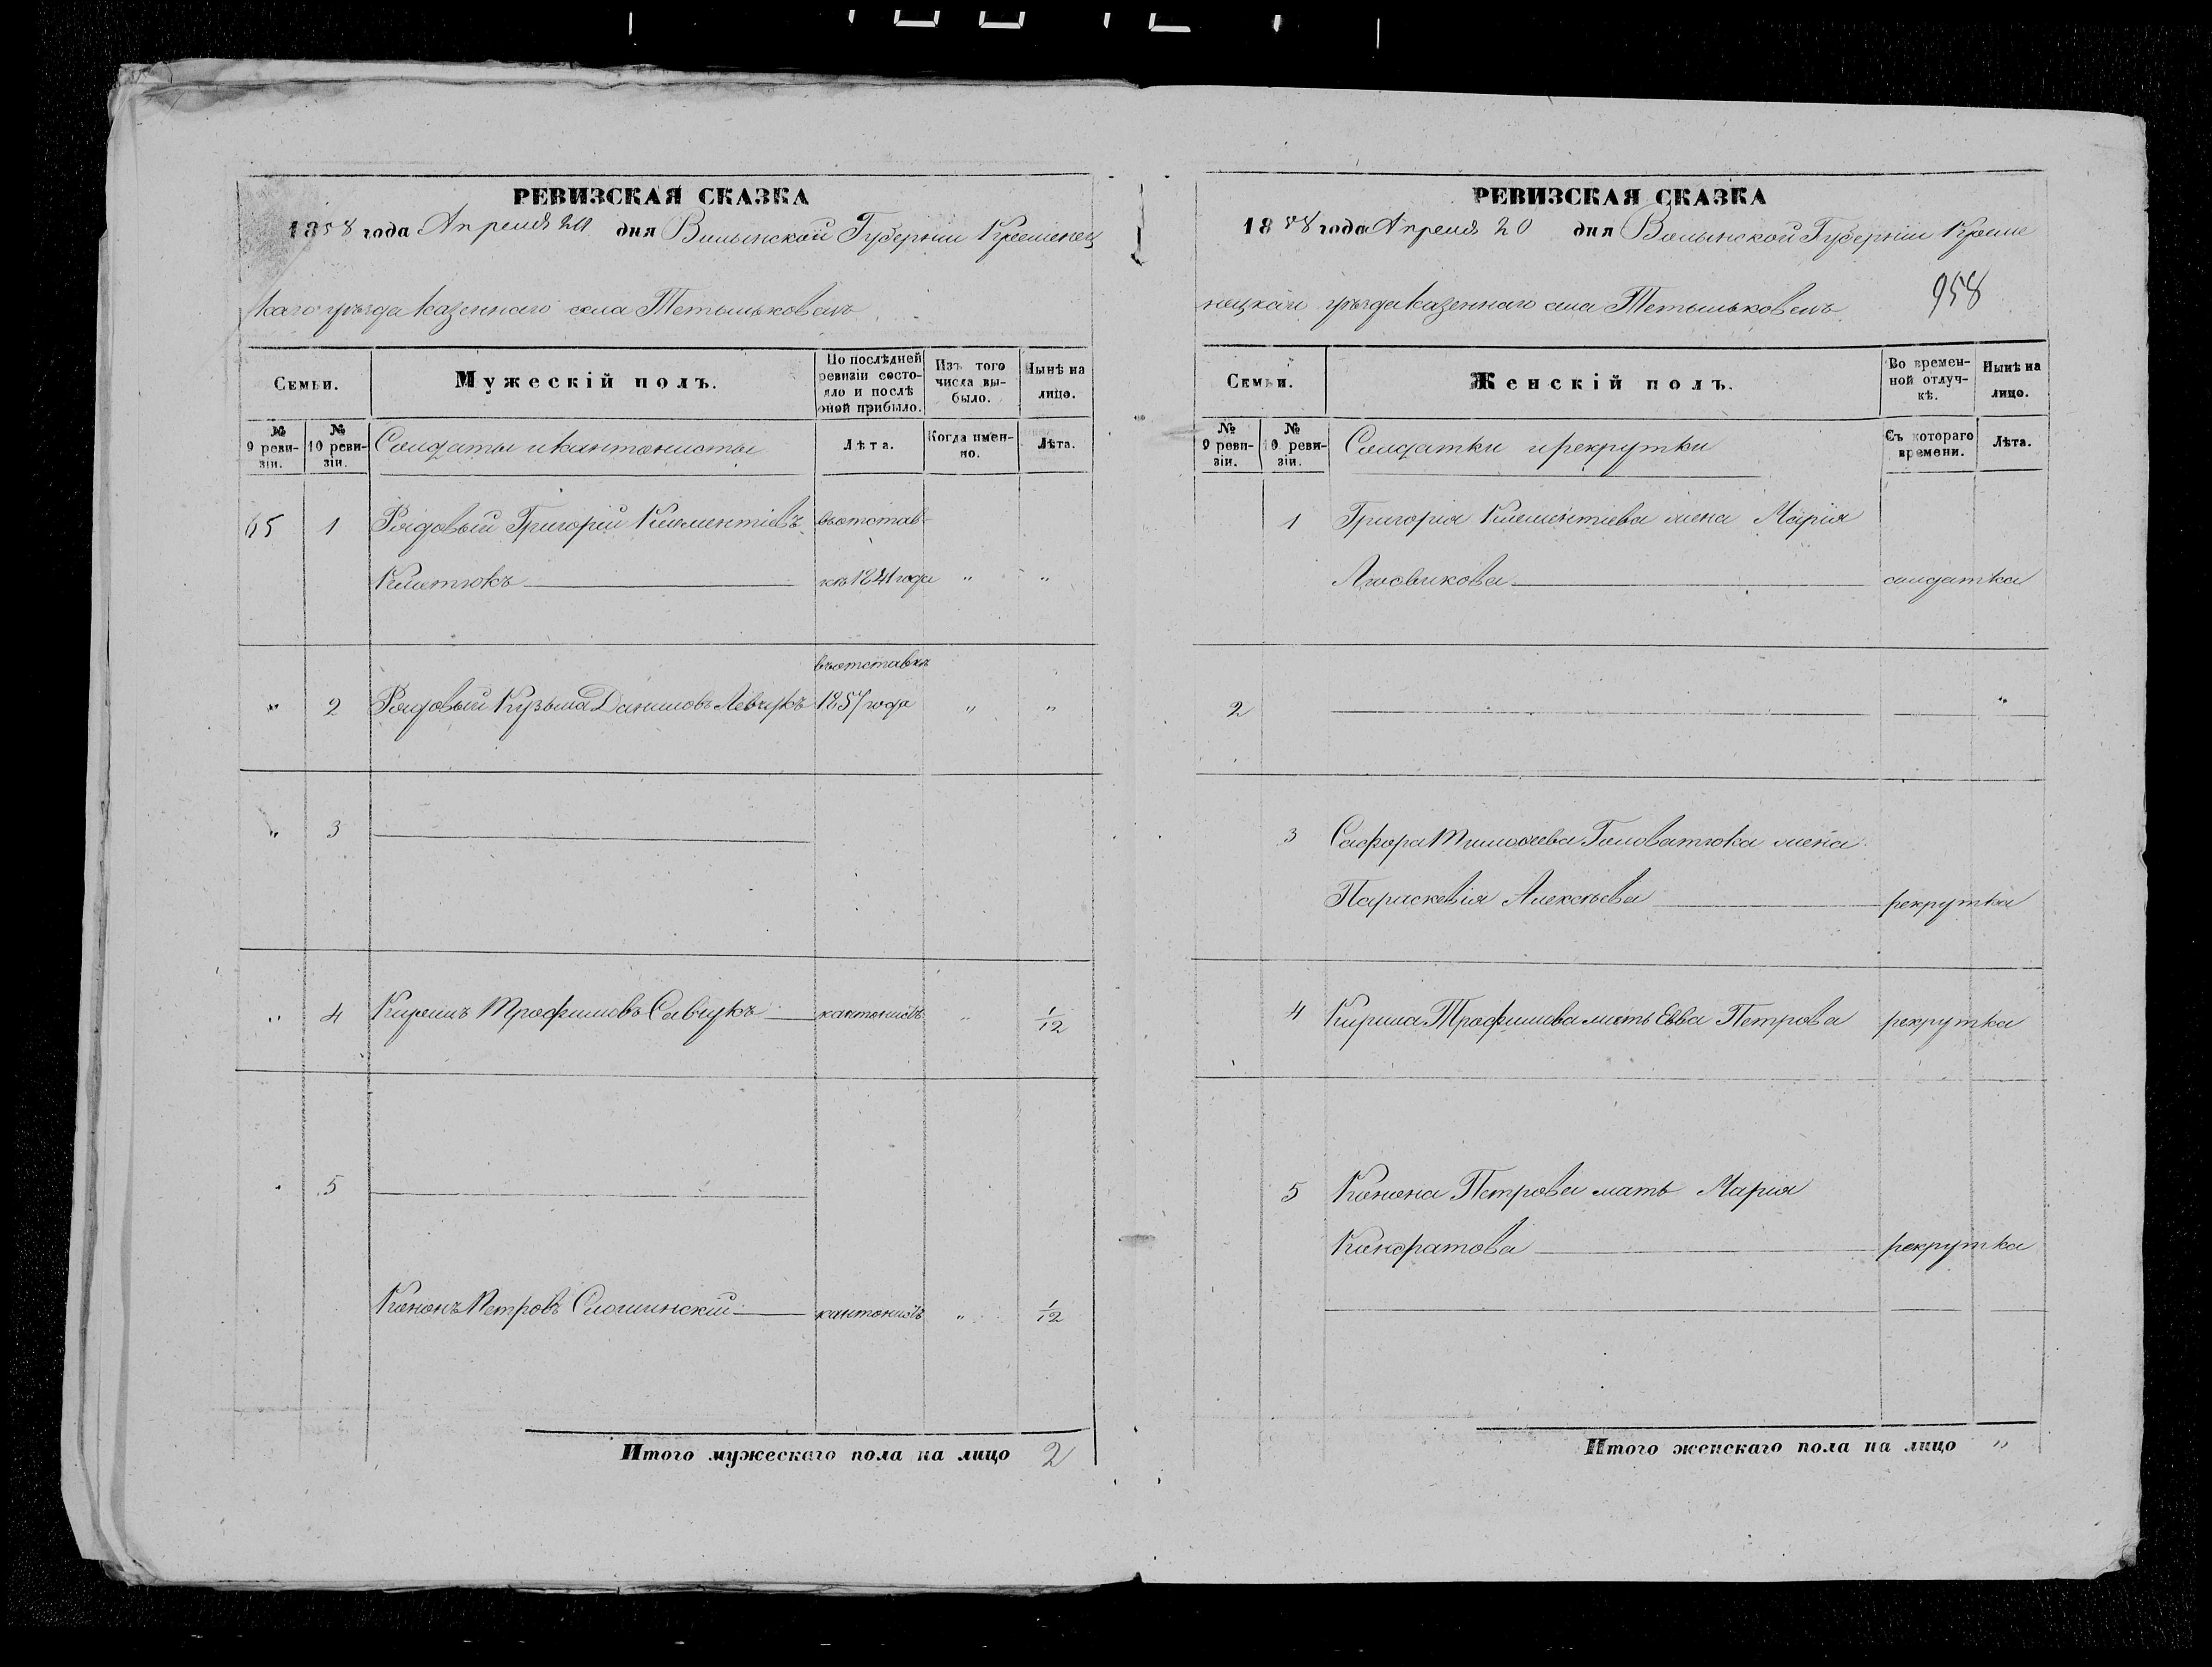 РЕВИЗСКАЯ СКАЗКА
1858 года Апреля 20 дня Волынской Губерніи Кременец
каго уѣзда казеннаго села Тетыльковецъ
Семьи.
Мужескій полъ.
По послѣдней ревизіи состояло и послѣ оной прибыло.
Изъ того числа выбыло.
Нынѣ на лицо.
№ 9 ревизіи.
№ 10 ревизіи.
Солдаты и кантонисты
Лѣта.
Когда именно.
Лѣта.
65 1 Рядовый Григорій Климентіевъ въ отстав-
кѣ 1841 года " "
въ отставкѣ
" 2 Рядовый Кузьма Даниловъ Левчукъ 1857 года " "
" 3
" 4 Кирилъ Трофимовъ Савчукъ кантонистъ " 1/12
" 5
Кононъ Петровъ кантонистъ " 1/12
Итого мужескаго пола на лицо 2
РЕВИЗСКАЯ СКАЗКА
1858 года Апреля 20 дня Волынской Губерніи Креме
нецкаго уѣзда казеннаго села Тетыльковецъ
958
Семьи.
Женскій полъ.
Во временной отлучкѣ.
Нынѣ на лицо.
№ 9 ревизіи.
№ 10 ревизіи.
Солдатки и рекрутки
Съ котораго времени.
Лѣта.
1 Григорія Климентіева жена Марія
солдатка
2 "
3 Тимофеева Головатюка жена
Параскевія Алексѣева рекрутка
4 Кирила Трофимова мать Евва Петрова рекрутка
5 Конона Петрова мать Марія
Кондратова рекрутка
Итого женскаго пола на лицо "